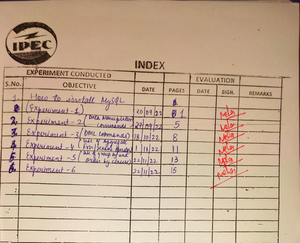 IPEC
INDEX
EXPERIMENT CONDUCTED
EVALUATION
S.No. OBJECTIVE DATE PAGES DATE SIGN. REMARKS
1. How to install MySQL
(Experiment-1) 20/09/22 1
2. Experiment-2 (Data Manipulation commands) 27/09/22 5
3. Experiment-3 (DML commands) 18/10/22 8
4. Experiment-4 11
5. Experiment-5 (Use of group by and order by clause) 22/11/22 13
6. Experiment-6 22/11/22 15